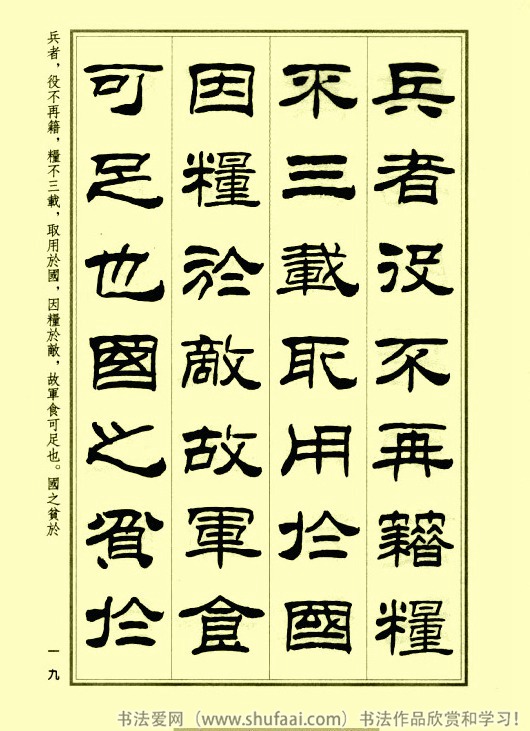 兵者役不再籍糧
不三載取用於國
因糧於敵故軍食
可足也國之貧於
兵者，役不再籍，糧不三載，取用於國，因糧於敵，故軍食可足也。國之貧於
一九
书法爱网（www.shufaai.com）书法作品欣赏和学习！